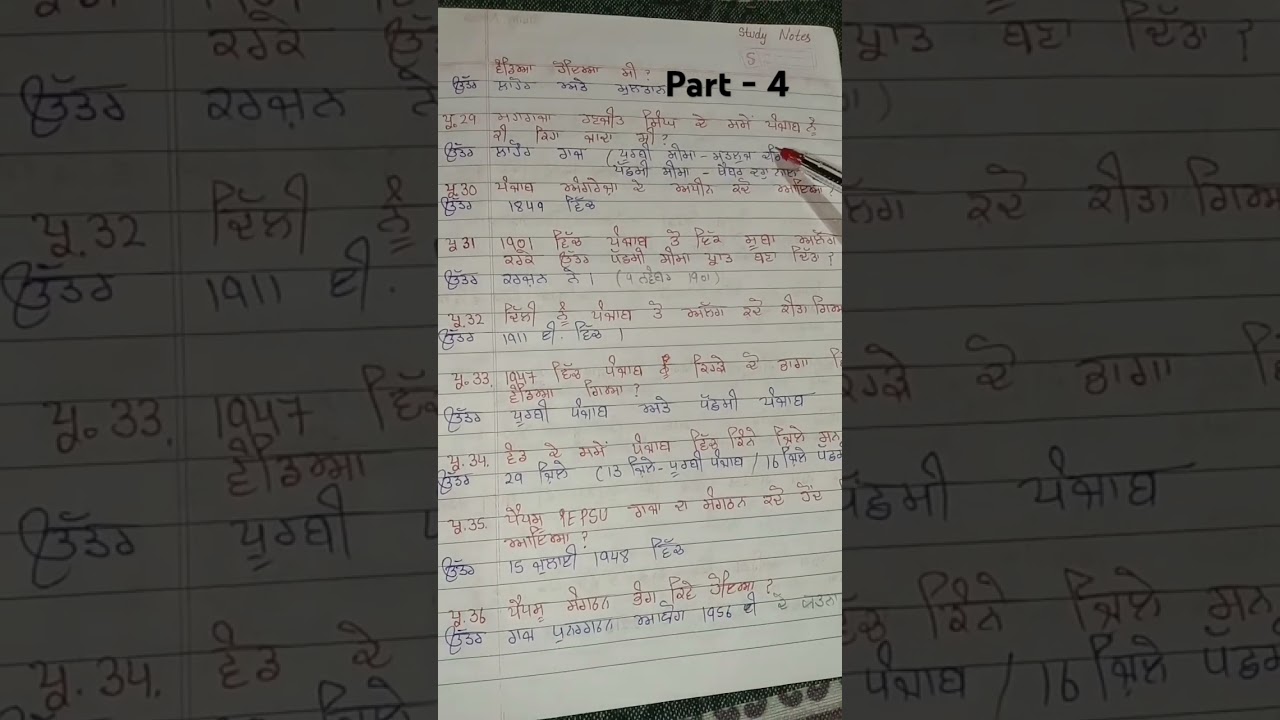 Study Notes
ਵੰਡਿਆ ਹੋਇਆ ਸੀ?
ਉੱਤਰ ਲਾਹੌਰ ਅਤੇ ਮੁਲਤਾਨ
Part - 4
ਪ੍ਰ.29 ਮਹਾਰਾਜਾ ਰਣਜੀਤ ਸਿੰਘ ਦੇ ਸਮੇਂ ਪੰਜਾਬ ਨੂੰ
ਕੀ ਕਿਹਾ ਜਾਂਦਾ ਸੀ?
ਉੱਤਰ ਲਾਹੌਰ ਰਾਜ (ਪੂਰਬੀ ਸੀਮਾ - ਸਤਲੁਜ
ਪੱਛਮੀ ਸੀਮਾ - ਖੈਬਰ ਦਰਾ
ਪ੍ਰ.30 ਪੰਜਾਬ ਅੰਗਰੇਜ਼ਾ ਦੇ ਅਧੀਨ ਕਦੋ ਆਇਆ?
ਉੱਤਰ 1849 ਵਿੱਚ
ਪ੍ਰ 31 1901 ਵਿੱਚ ਪੰਜਾਬ ਤੋ ਇੱਕ ਸੂਬਾ ਅਲੱਗ
ਕਰਕੇ ਉੱਤਰ ਪੱਛਮੀ ਸੀਮਾ ਪ੍ਰਾਤ ਬਣਾ ਦਿੱਤਾ?
ਉੱਤਰ ਕਰਜ਼ਨ ਨੇ। (9 ਨਵੰਬਰ 1901)
ਪ੍ਰ.32 ਦਿੱਲੀ ਨੂੰ ਪੰਜਾਬ ਤੋ ਅਲੱਗ ਕਦੋ ਕੀਤਾ ਗਿਆ
ਉੱਤਰ 1911 ਈ. ਵਿੱਚ।
ਪ੍ਰ.33. 1947 ਵਿੱਚ ਪੰਜਾਬ ਨੂੰ ਕਿਹੜੇ ਦੋ ਭਾਗਾ ਵਿ
ਵੰਡਿਆ ਗਿਆ?
ਉੱਤਰ ਪੂਰਬੀ ਪੰਜਾਬ ਅਤੇ ਪੱਛਮੀ ਪੰਜਾਬ
ਪ੍ਰ.34. ਵੰਡ ਦੇ ਸਮੇਂ ਪੰਜਾਬ ਵਿੱਚ ਕਿੰਨੇ ਜ਼ਿਲੇ ਸਨ
ਉੱਤਰ 29 ਜ਼ਿਲੇ (13 ਜ਼ਿਲੇ - ਪੂਰਬੀ ਪੰਜਾਬ / 16 ਜ਼ਿਲੇ ਪੱਛਮ
ਪ੍ਰ.35. ਪੈਪਸੂ PEPSU ਰਾਜ ਦਾ ਸੰਗਠਨ ਕਦੋ ਹੋਂਦ
ਆਇਆ?
ਉੱਤਰ 15 ਜੁਲਾਈ 1948 ਵਿੱਚ
ਪ੍ਰ.36 ਪੈਪਸੂ ਸੰਗਠਨ ਭੰਗ ਕਿਵੇ ਹੋਇਆ?
ਉੱਤਰ ਰਾਜ ਪੁਨਰਗਠਨ ਆਯੋਗ 1956 ਈ ਦੇ